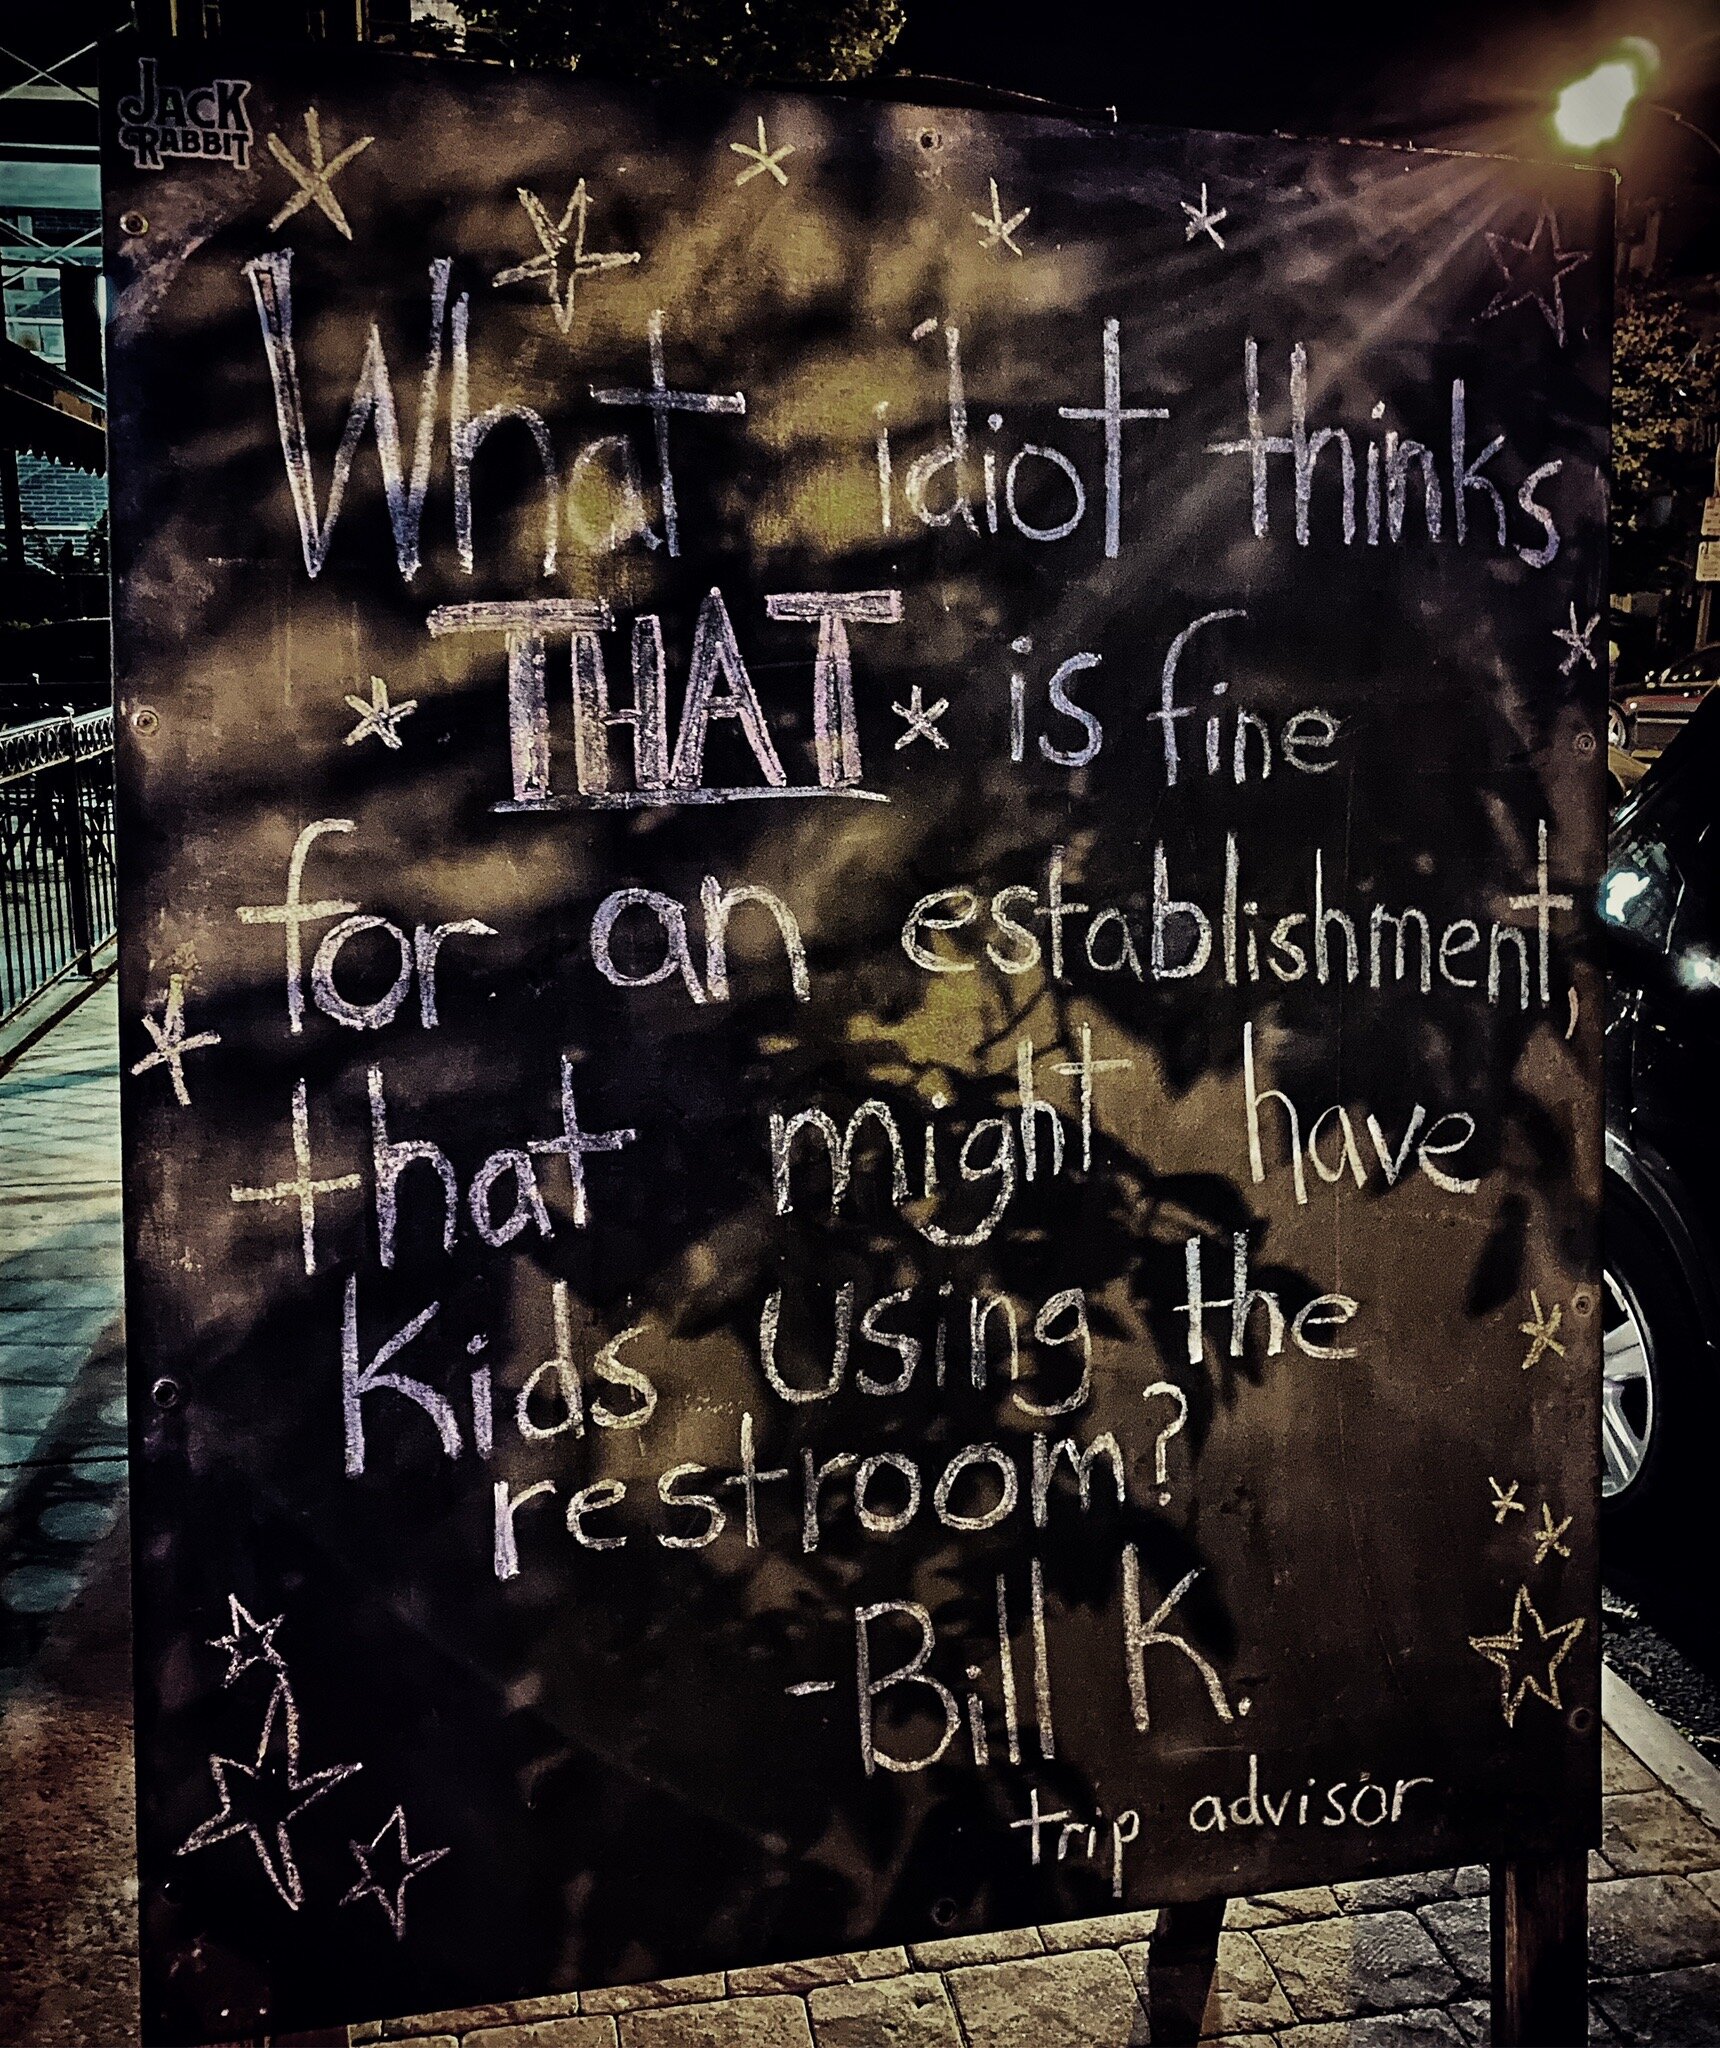 JACK
RABBIT
What idiot thinks
THAT is fine
for an establishment,
that might have
kids using the
restroom?
-Bill K.
trip advisor